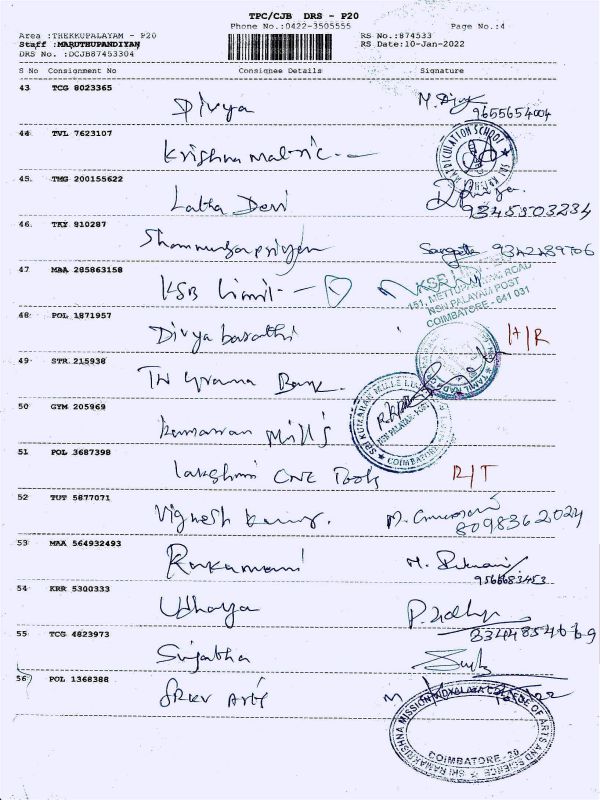 TPC/CJB DRS - P20
Phone No.:0422-3505555
Page No.:4
Area :THEKKUPALAYAM - P20
RS No.:874533
Staff :MARUTHUPANDIYAN
RS Date:10-Jan-2022
DRS No. :DCJB87453304
S No Consignment No Consignee Details Signature
43 TCG 8023365
Divya
9655654004
44 TVL 7623107
Krishna Matric
MATRICULATION SCHOOL
45. TMG 200155622
Latha Devi
9345503234
46. TKY 810287
Shanmugapriyan Sangeetha
47 MAA 285863158
KSB Limit
KSB
151, METTUPALAYAM ROAD
NSN PALAYAM POST
COIMBATORE - 641 031
48 POL 1871957
Divya barathi
49 STR 215938
TN Grama Bank.
50 GYM 205969
Kumaran Mills
SRI KUMARAN MILLS
NSN PALAYAM-POST
COIMBATORE
51 POL 3687398
Lakshmi CNC Tools
52 TUT 5877071
Vignesh Kumar.
8098362024
53 MAA 564932493
Rukumani
9566683453
54 KRR 5300333
Udhaya
55 TCG 4823973
Sujatha
56 POL 1368388
SRKV Arts
SRI RAMAKRISHNA MISSION VIDYALAYA COLLEGE OF ARTS AND SCIENCE
COIMBATORE - 20